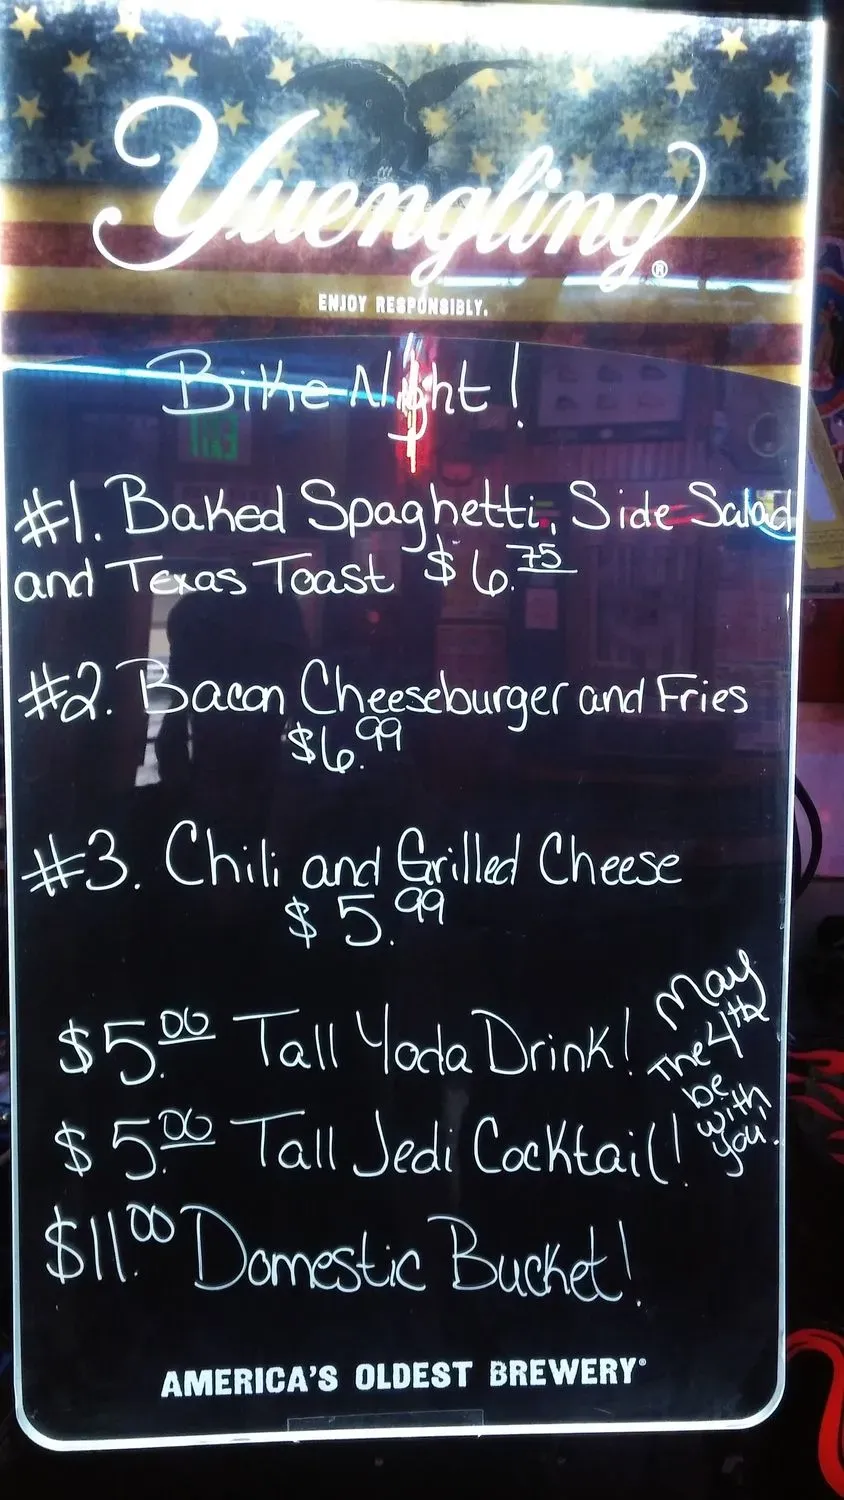 Yuengling®
ENJOY RESPONSIBLY.
Bike Night!
#1. Baked Spaghetti, Side Salad
and Texas Toast $6.75
#2. Bacon Cheeseburger and Fries
$6.99
#3. Chili and Grilled Cheese
$5.99
$5.00 Tall Yoda Drink!
$5.00 Tall Jedi Cocktail!
May
The 4th
be
with
you!
$11.00 Domestic Bucket!
AMERICA'S OLDEST BREWERY®